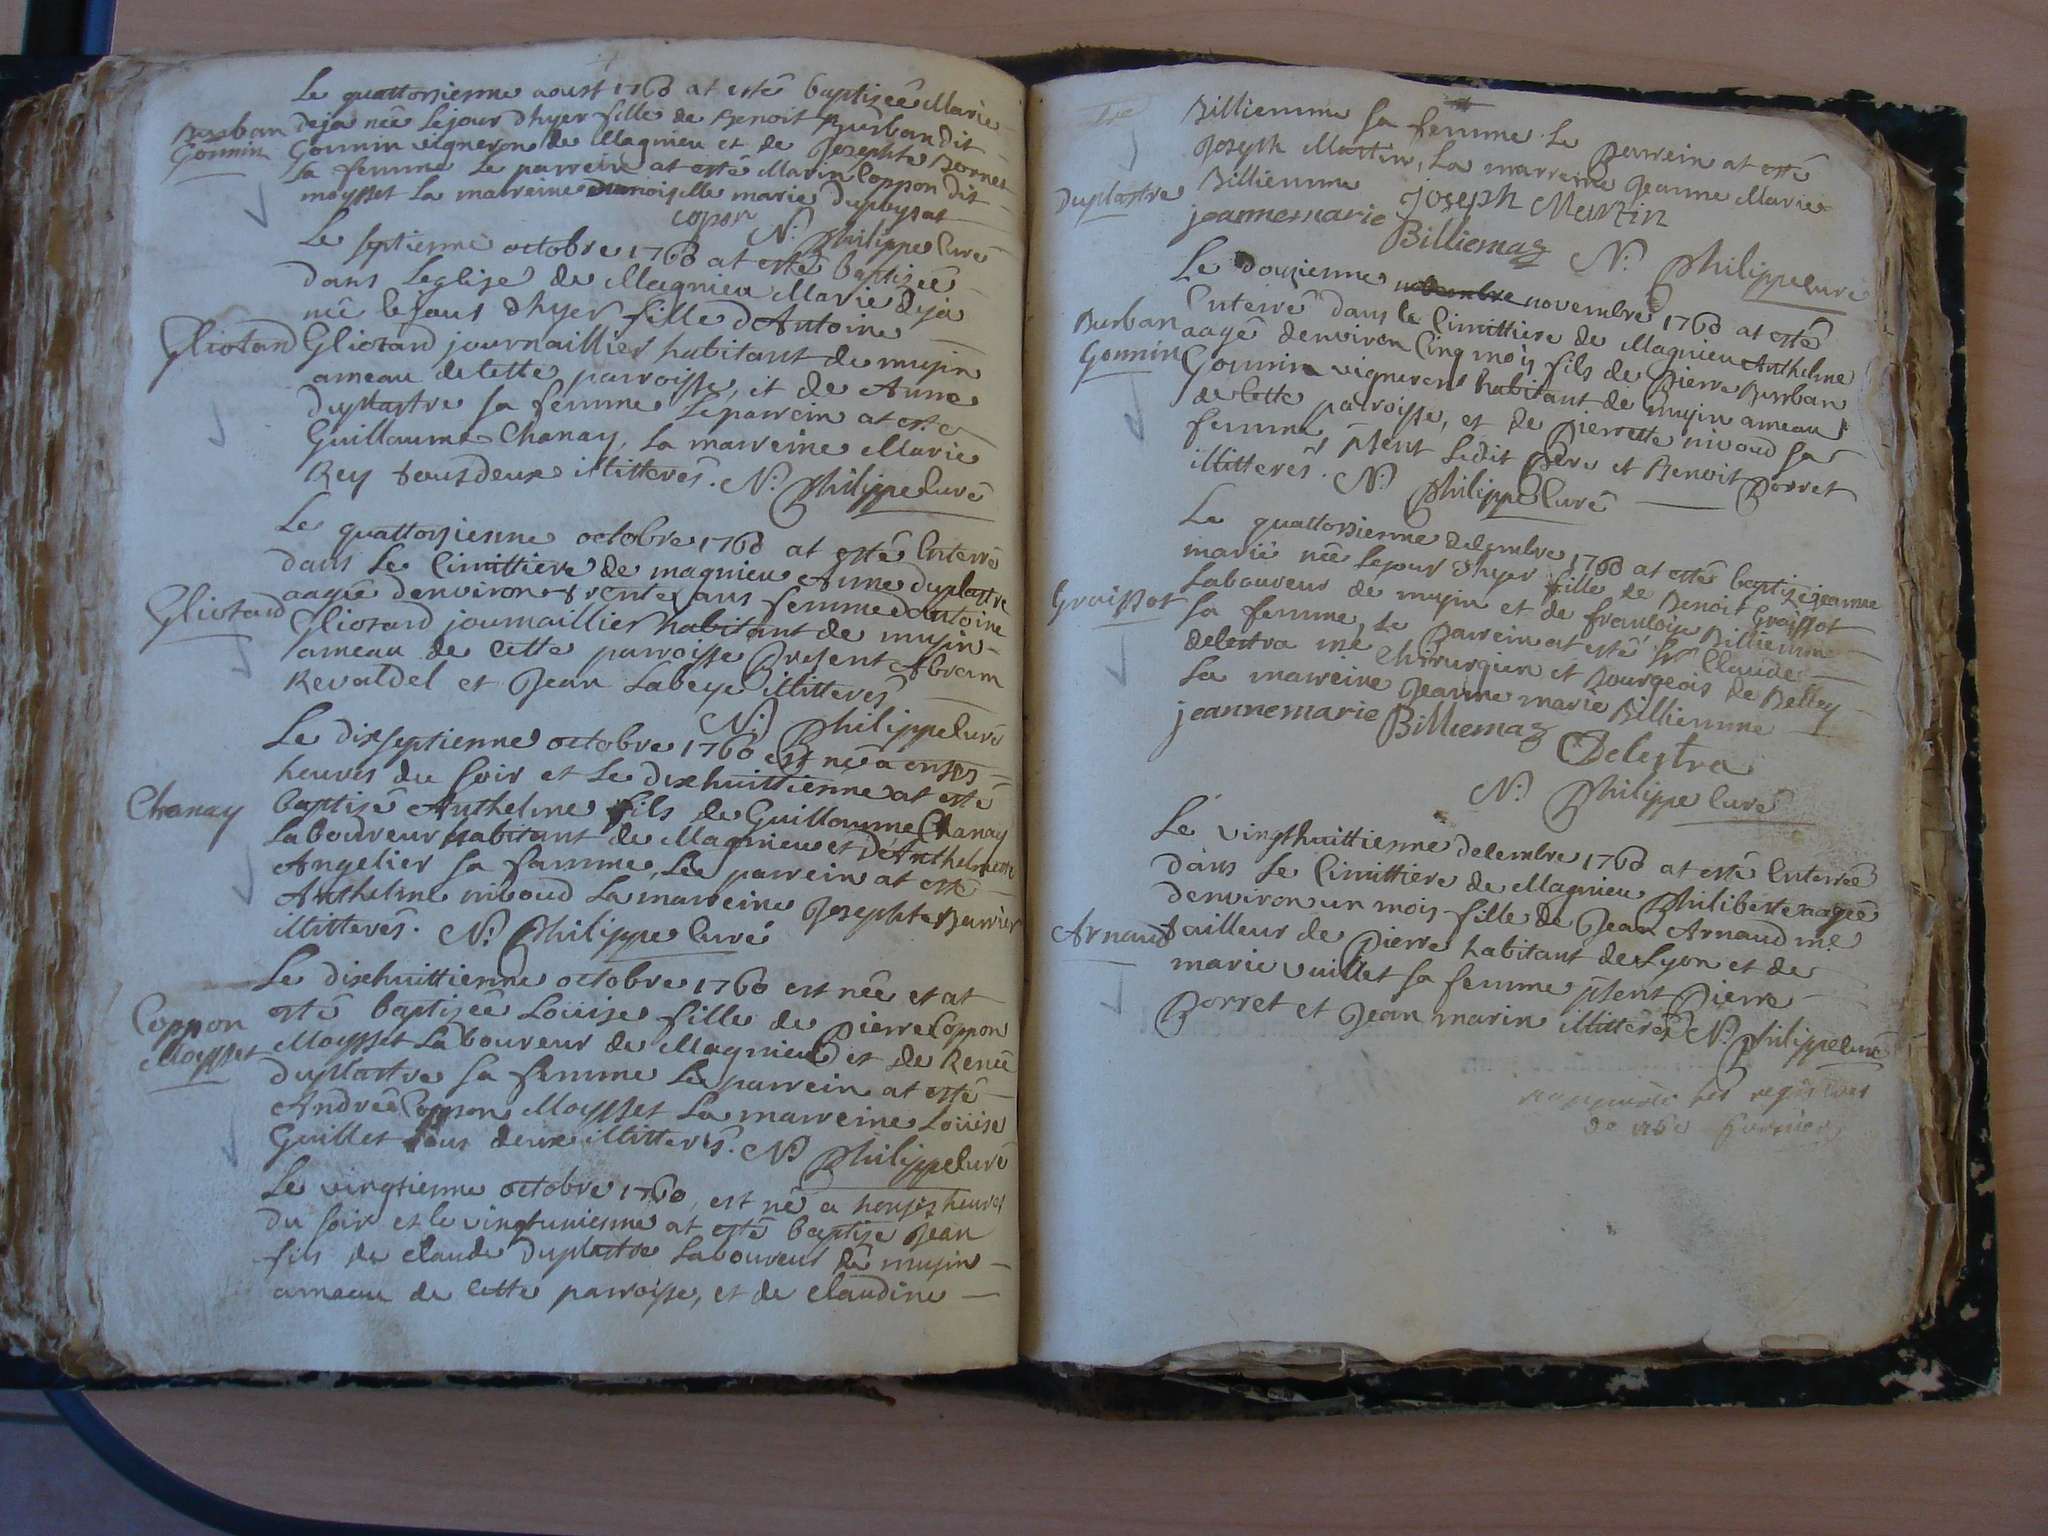 Le quattorsienne aoust 1760 at esté baptizée Marie
Burban
deja née le jour dhyer fille de Benoit Burban dit
Gonnin
Gonnin vigneron de Magnieu et de Josephte Bornet
sa femme le parrein at esté Marin Coppon dit
moysset La marreine demoiselle marie dupeysat
copon N. Philippe Curé
Le septienne octobre 1760 at esté baptizée
dans Leglise de Magnieu Marie deja
née le jour dhyer fille dAntoine
Gliozand
Gliozand journaillier habitant de musin
ameau de cette parroisse, et de Anne
duplastre sa femme Le parrein at esté
Guillaume Chanay, La marreine Marie
Rey tous deux illitterés. N. Philippe Curé
Le quattorsienne octobre 1760 at esté Enterré
dans Le Cimittiere de magnieu Anne duplastre
aagée denviron trente ans femme dAntoine
Gliozand
Gliozand journaillier habitant de musin
ameau de cette parroisse Present Abram
Revaldel et Jean Labeye illitterés
N. Philippe Curé
Le dixseptienne octobre 1760 est né a onses
heures du soir et Le dixhuittienne at esté
Chanay
baptizé Anthelme fils de Guillaume Chanay
Laboureur habitant de Magnieu et d'Anthelmette
Angelier sa famme, Le parrein at esté
Anthelme nivoud La marreine Josephte Burrier
illitterés. N. Philippe Curé
Le dixhuittienne octobre 1760 est née et at
Coppon
esté baptizée Loüise fille de Pierre Coppon
Moysset
Moysset Laboureur de Magnieu et de Renée
duplastre sa femme Le parrein at esté
Andrée Coppon Moysset La marreine Loüise
Guillet tous deux illitterés. N. Philippe Curé
Le vingtienne octobre 1760, est né a honses heures
du soir et le vingtuniesme at esté baptize Jean
fils de claude Duplastre Laboureur de musin
ameau de Cette parroisse, et de claudine
Billiemme sa femme. Le Parrein at esté
Joseph Martin, La marreine Jeanne Marie
duplastre
Billiemme Joseph Martin
jeannemarie Billiemaz N. Philippe Curé
Le douzienne novembre 1760 at esté
Enterré dans le Cimittiere de Magnieu Anthelme
Burban
aagé denviron Cinq mois fils de Pierre Burban
Gonnin
Gonnin vigneron habitant de musin ameau
de Cette parroisse, et de Pierrette nivoud sa
femme, Psent Ledit Pere et Benoit Porret
illitterés. N. Philippe Curé
Le quattorsienne decembre 1760 at esté baptizé jeanne
marie née Le jour dhyer fille de Benoit Graissot
Graissot
Laboureur de musin et de francoise Billiemme
sa femme, Le Parrein at esté Sr Claude
delestra me Chirurgien et Bourgeois de Belley
La marreine Jeanne marie Billiemme
jeannemarie Billiemaz Delestra
N. Philippe Curé
Le vingthuittienne decembre 1760 at esté Enterrée
dans Le Cimittiere de Magnieu Philiberte aagée
denviron un mois fille de Jean Arnaud me
Arnaud
tailleur de Pierre habitant de Lyon et de
marie vuillet sa femme psent Pierre
Porret et Jean marin illitterés N. Philippe Curé
les registres